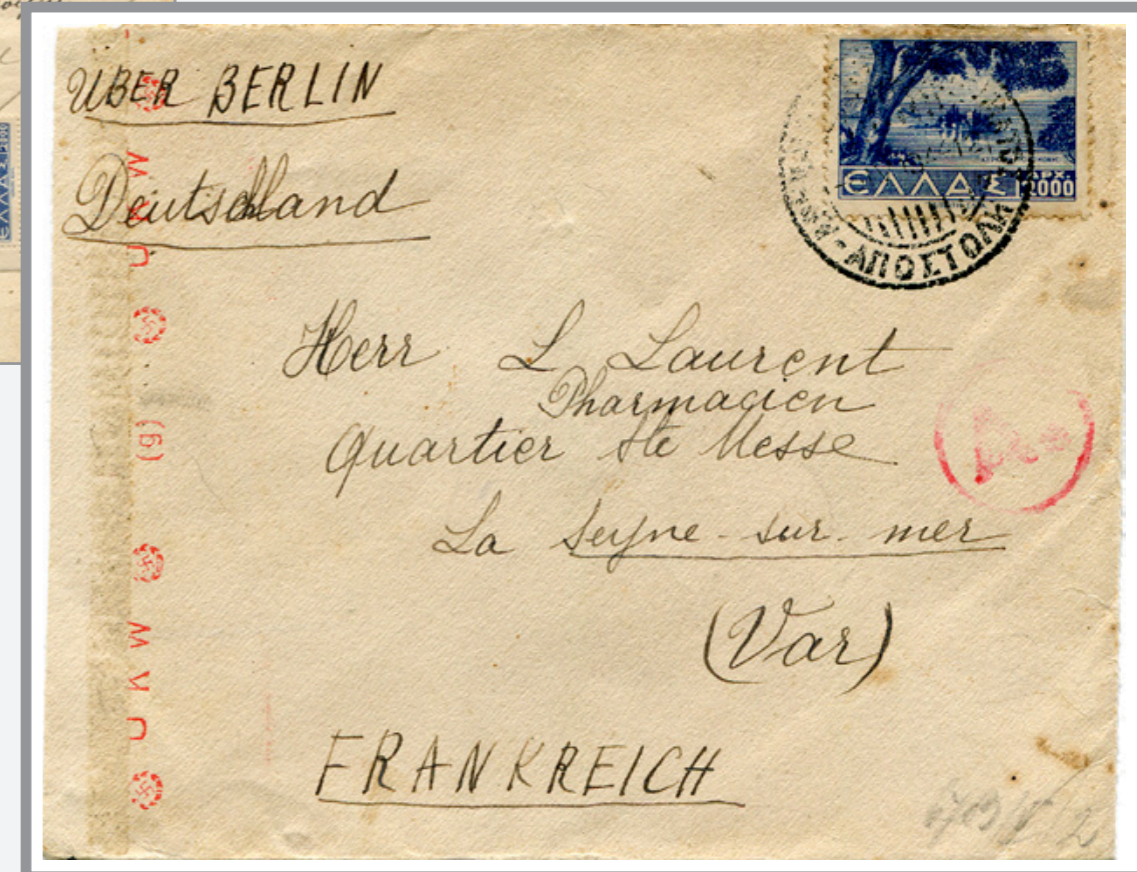 UBER BERLIN
Deutschland
ΕΛΛΑΣ
ΔΡΧ.
2000
ΑΠΟΣΤΟΛΗ
Herr L Laurent
Pharmacien
Quartier Ste Messe
La Seyne-sur-mer
(Var)
FRANKREICH
(g)